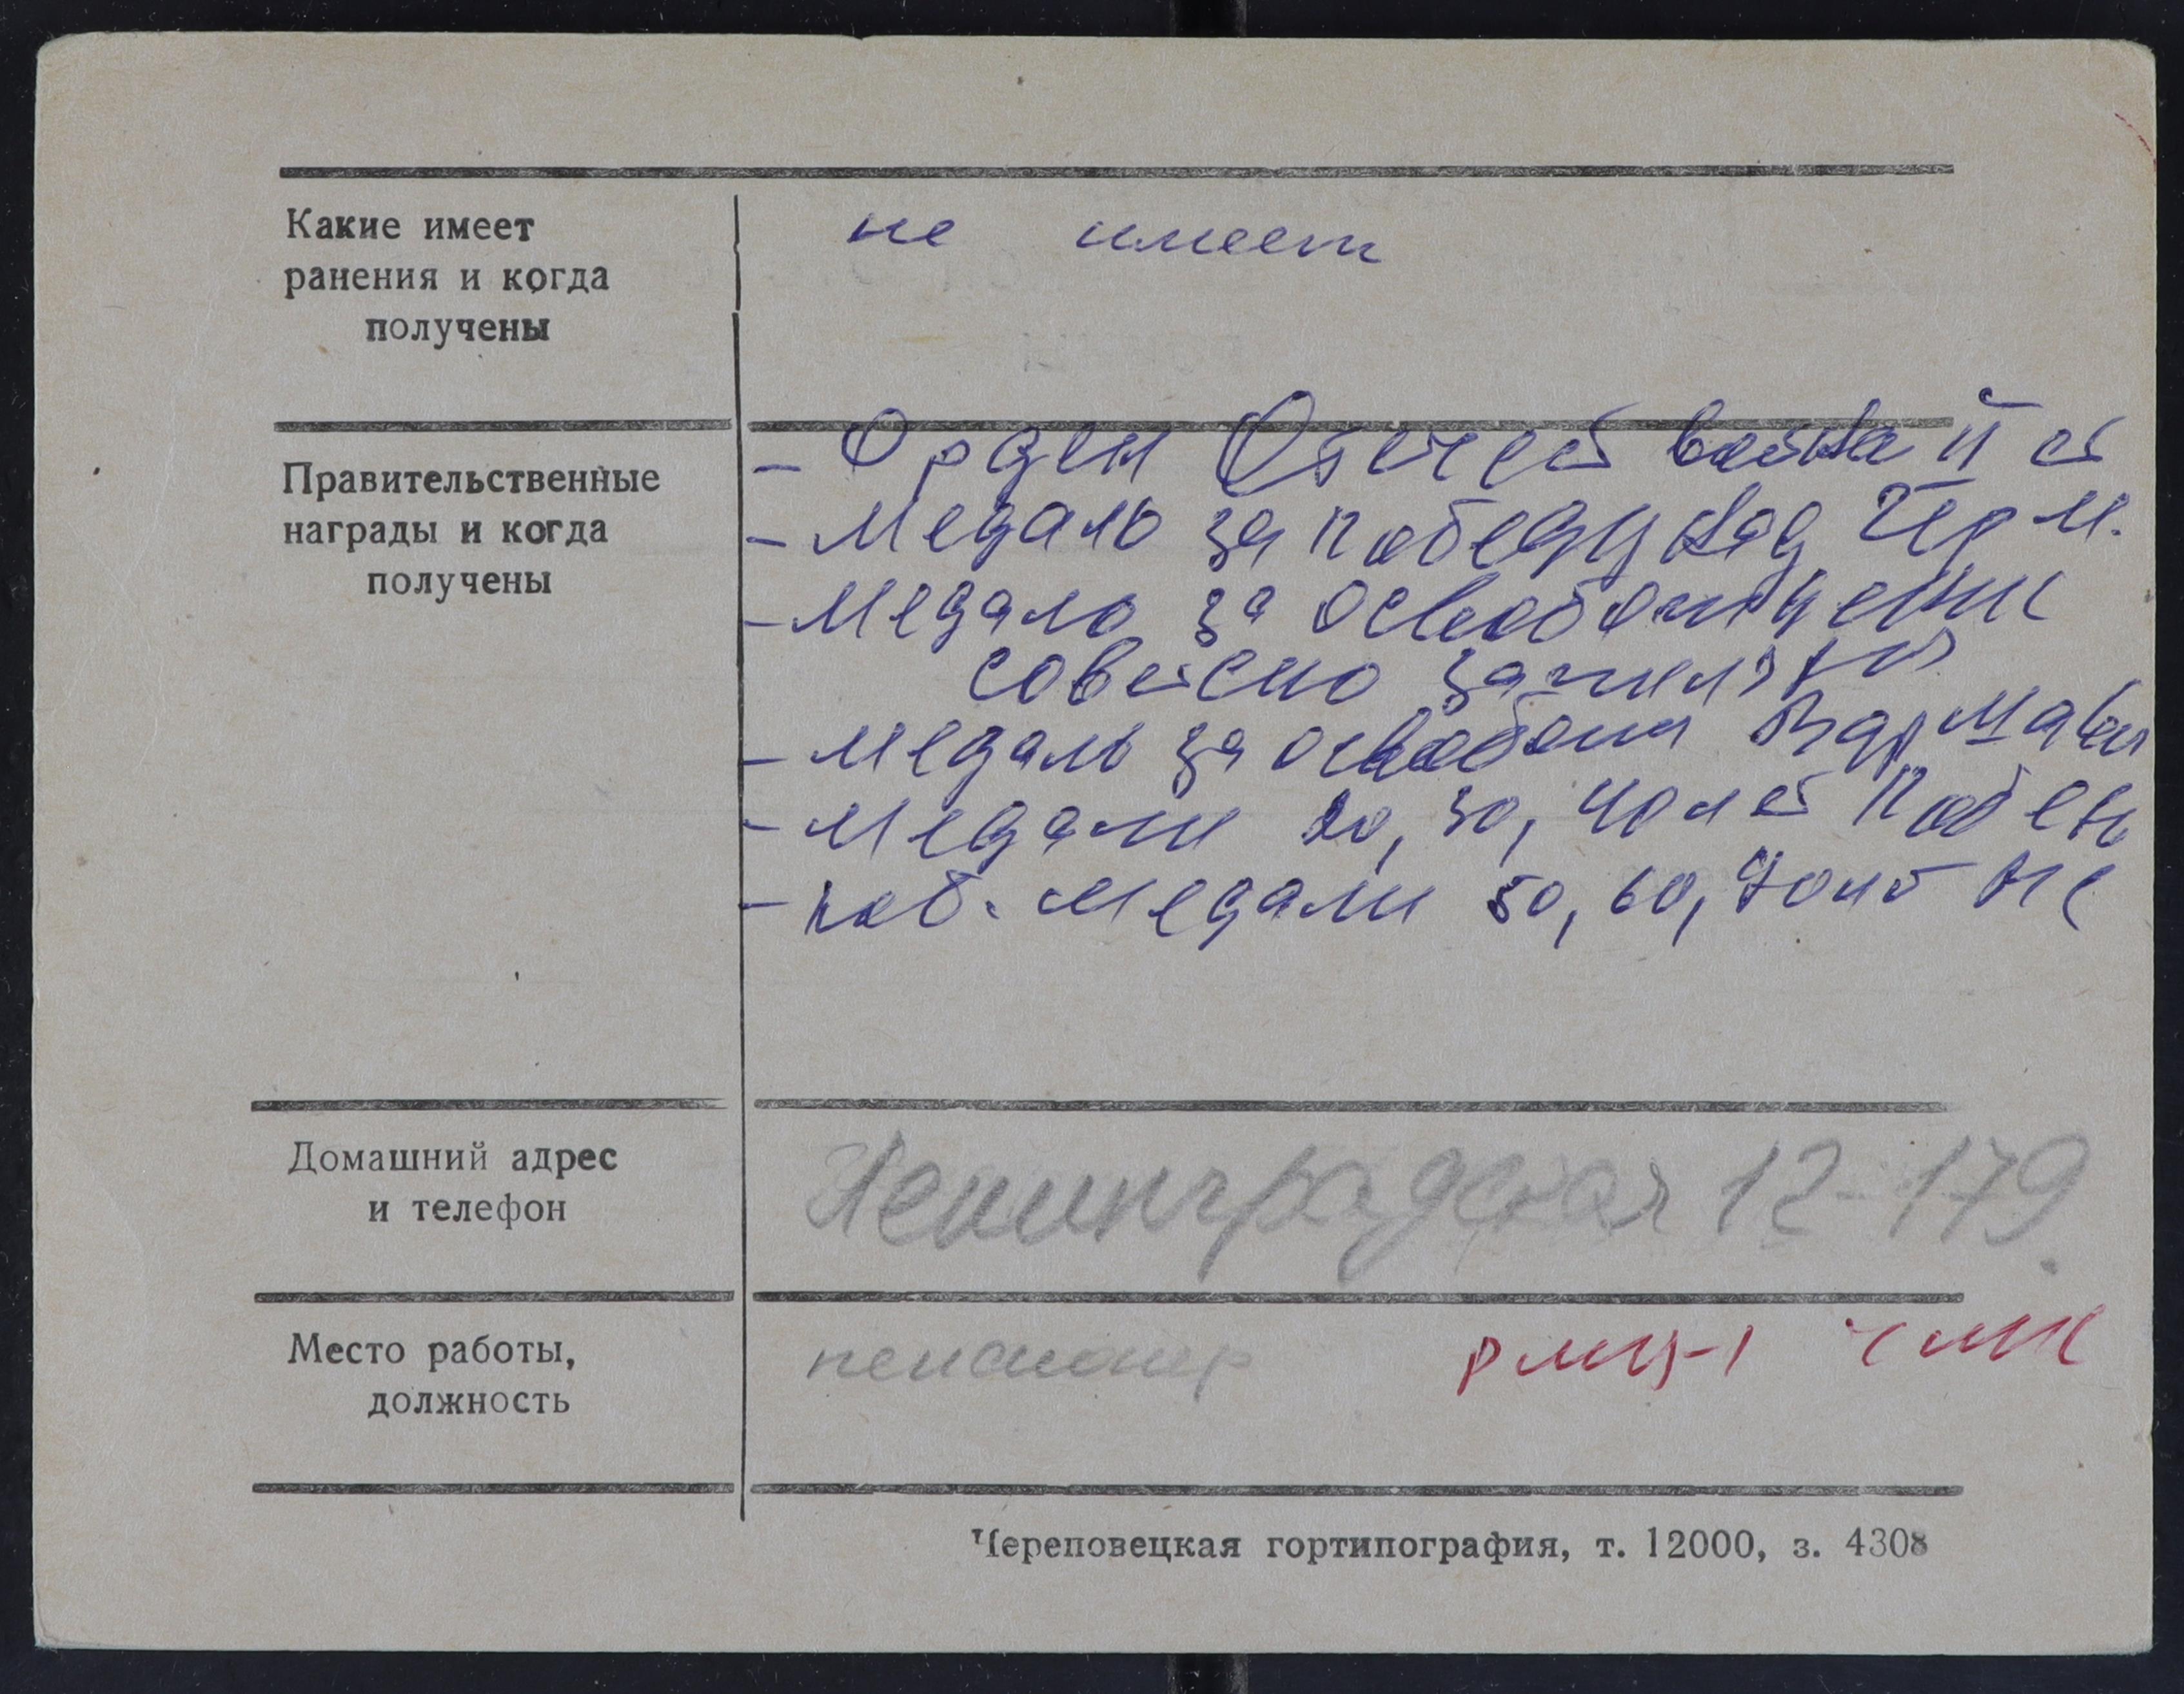 Какие имеет
ранения и когда
получены
не имеет
Правительственные
награды и когда
получены
- Орден Отечес войны II ст
- Медаль за победу над Герм.
- Медаль за освобождение
советско
- Медаль за освобожд Варшавы
- Медали 20, 30, 40 лет Победы
- юб. медали 50, 60, 70 лет ВС
Домашний адрес
и телефон
Ленинградская 12-179.
Место работы,
должность
пенсионер РМЦ-1 ЧМК
Череповецкая гортипография, т. 12000, з. 4308